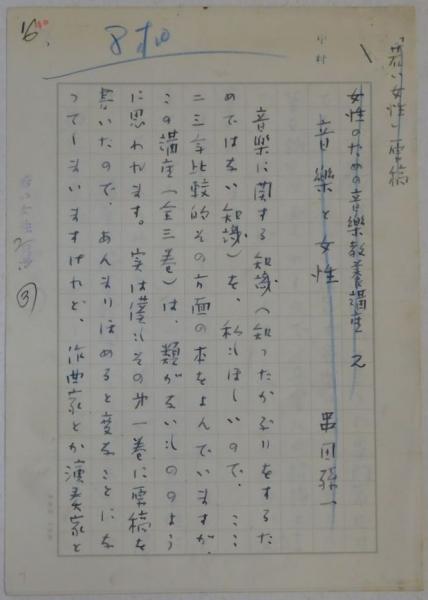 「若い女性」原稿
女性のための音樂教養講座
音樂と女性
串田孫一
音樂に関する知識(知ったかぶりをするた
めではない知識)を、私もほしいので、ここ
二三年比較的その方面の本をよんでいますが、
この講座(全三巻)は、類がないもののよう
に思われます。実は僕もその第一巻に原稿を
書いたので、あんまりほめると変なことにな
ってしまいますけれど、作曲家とか演奏家と
16
③